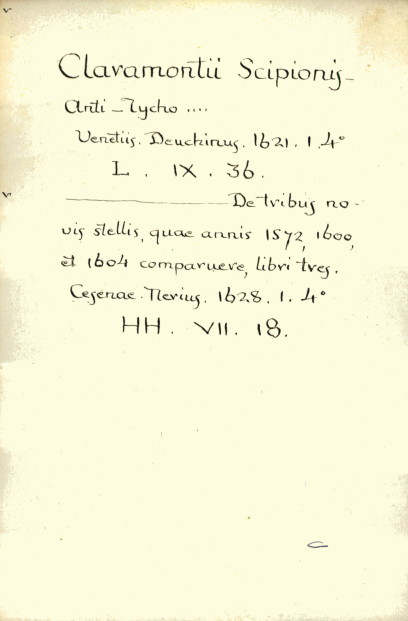 Claramontii Scipionis_
Anti_Tycho ....
Venetiis. Deuchinus. 1621. 1. 4°
L. IX. 36.
De tribus no-
vis stellis, quae annis 1572, 1600,
et 1604 comparuere, libri tres.
Cesenae. Nerius. 1628. 1. 4°
HH. VII. 18.